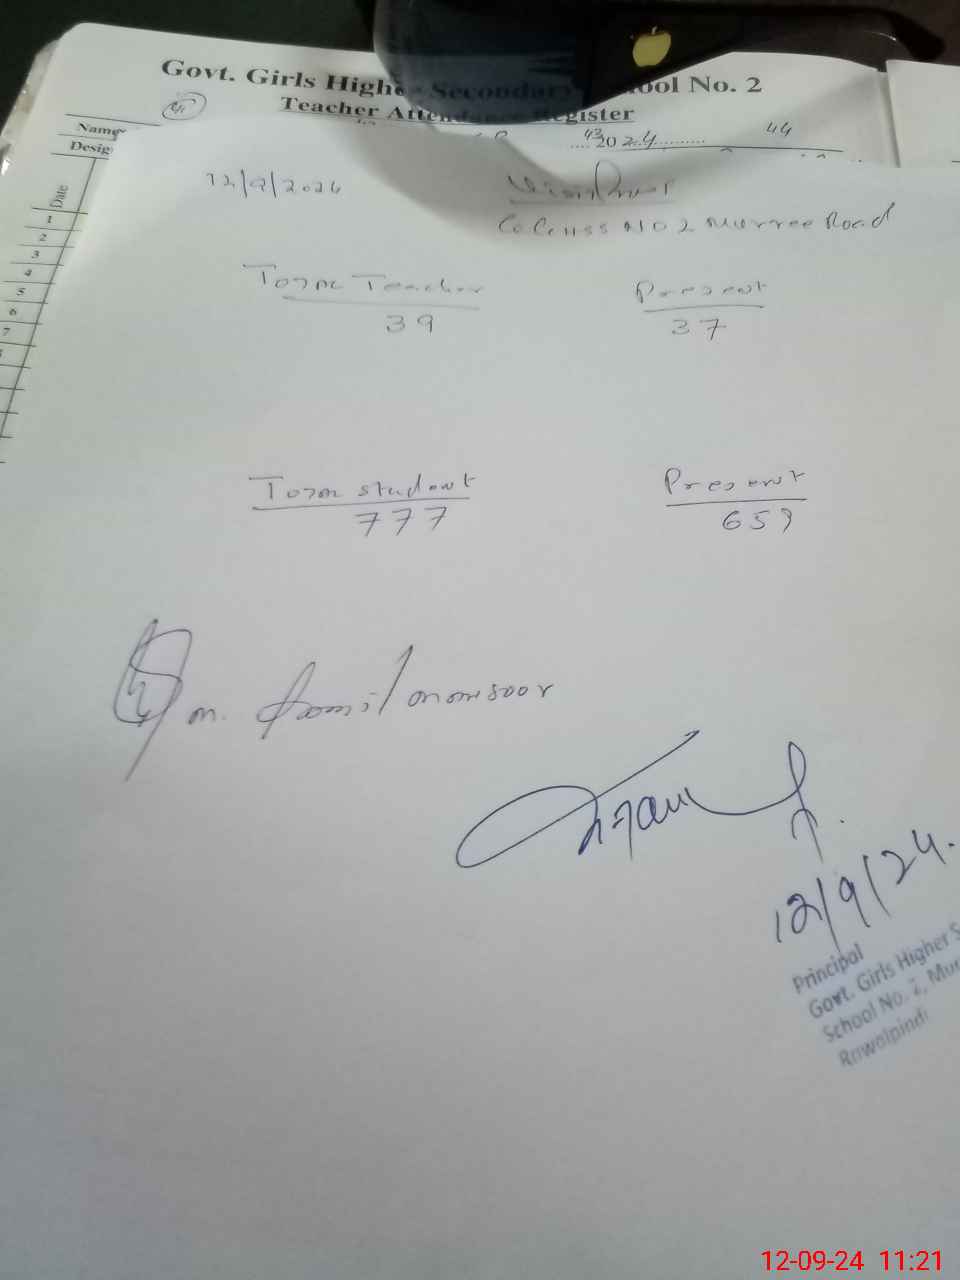 Govt. Girls Higher Secondary School No. 2
Teacher Attendance Register
43
2024
44
Name
Desig
Date
1
2
3
4
5
6
7
12/9/2024
Visit Proof
GGHSS NO 2 Murree Road
Total Teacher
39
Present
37
Total student
777
Present
659
m. Kamil mansoor
12/9/24.
Principal
Govt. Girls Higher S
School No. 2, Mur
Rawalpindi
12-09-24 11:21